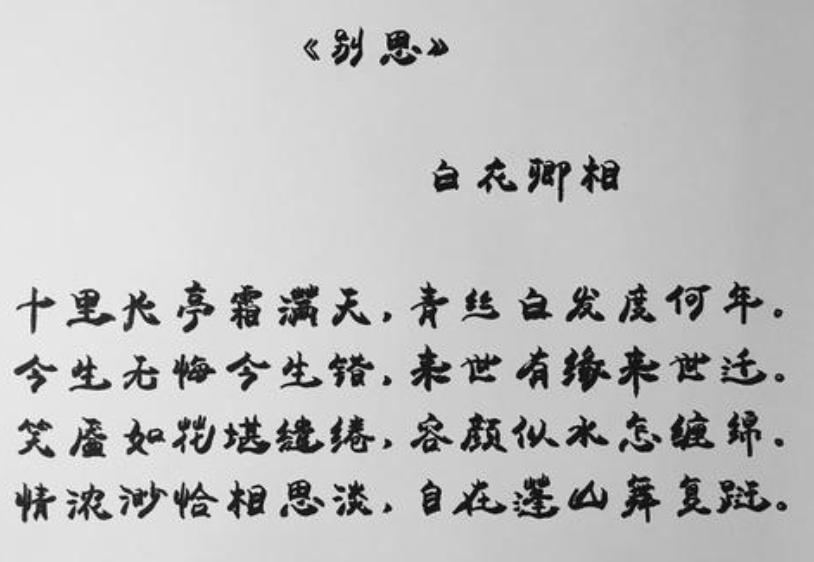 《别思》
白衣卿相
十里长亭霜满天,青丝白发度何年。
今生无悔今生错,来世有缘来世迁。
笑靥如花堪缱绻,容颜似水怎缠绵。
情浓渺恰相思淡,自在蓬山舞复跹。